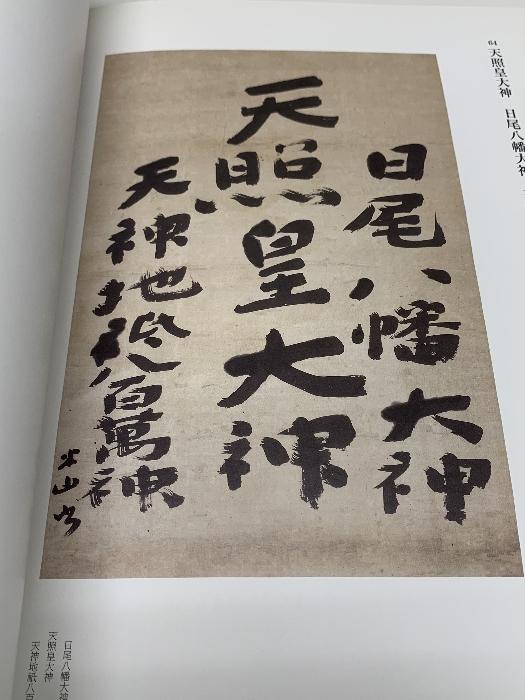 64 天照皇大神 日尾八幡大神
日尾八幡大神
天照皇大神
天神地祇八百萬神
米山書
日尾八幡大神
天照皇大神
天神地祇八百